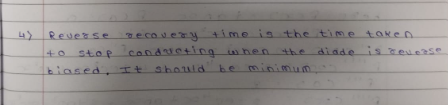 4) Reverse recovery time is the time taken
to stop conducting when the diode is reverse
biased. It should be minimum.